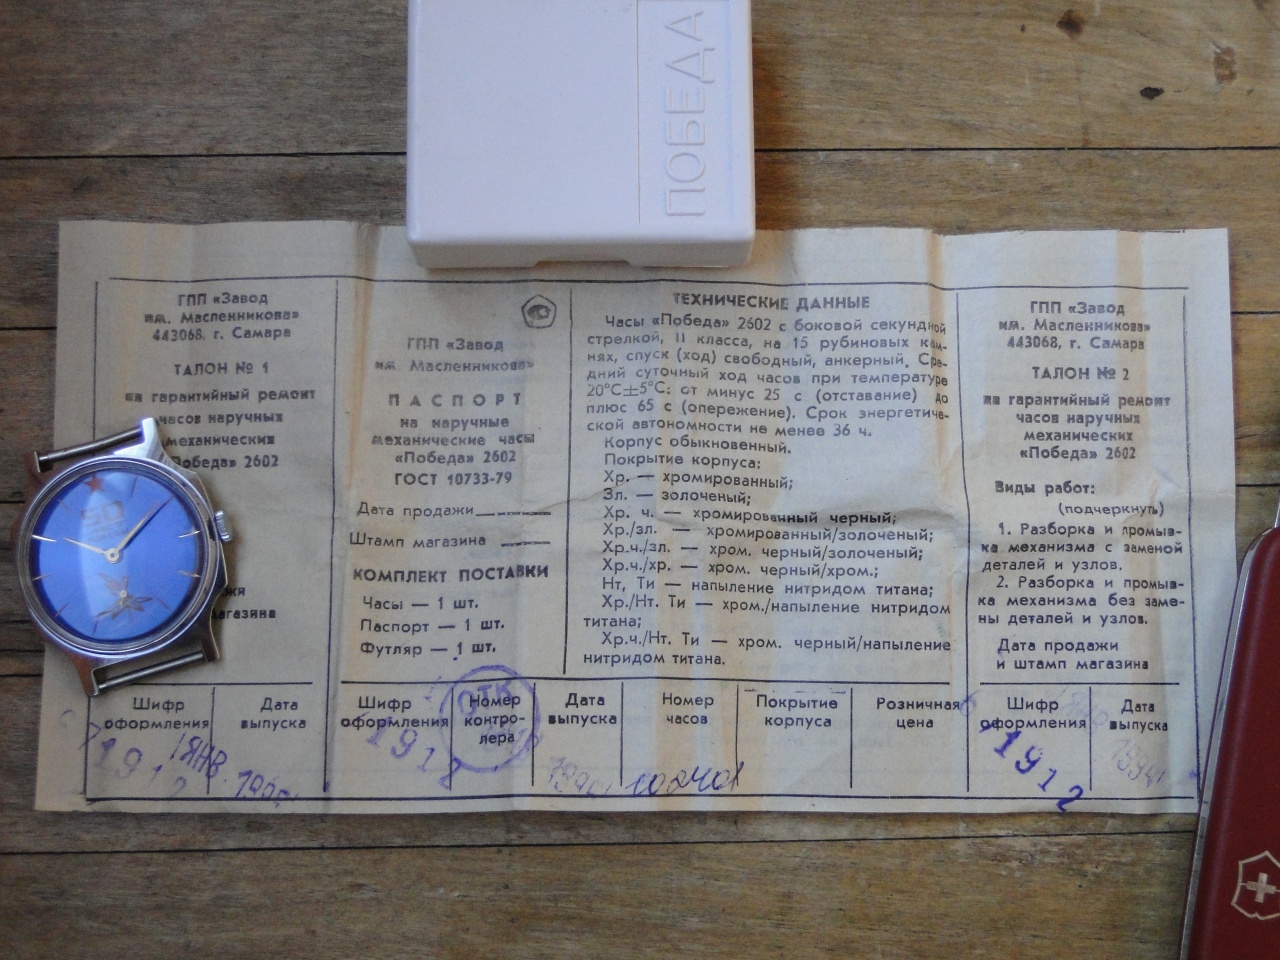 ПОБЕДА
ГПП «Завод
им. Масленникова»
443068, г. Самара
ТАЛОН № 1
на гарантийный ремонт
часов наручных
механических
«Победа» 2602
магазина
Шифр оформления
Дата выпуска
1912
1 ЯНВ.
ГПП «Завод
им. Масленникова»
ПАСПОРТ
на наручные
механические часы
«Победа» 2602
ГОСТ 10733-79
Дата продажи
Штамп магазина
КОМПЛЕКТ ПОСТАВКИ
Часы — 1 шт.
Паспорт — 1 шт.
Футляр — 1 шт.
ТЕХНИЧЕСКИЕ ДАННЫЕ
Часы «Победа» 2602 с боковой секундной
стрелкой, II класса, на 15 рубиновых кам-
нях, спуск (ход) свободный, анкерный. Сре-
дний суточный ход часов при температуре
20°С±5°С: от минус 25 с (отставание) до
плюс 65 с (опережение). Срок энергетиче-
ской автономности не менее 36 ч.
Корпус обыкновенный.
Покрытие корпуса:
Хр. — хромированный;
Зл. — золоченый;
Хр. ч. — хромированный черный;
Хр./зл. — хромированный/золоченый;
Хр.ч./зл. — хром. черный/золоченый;
Хр.ч./хр. — хром. черный/хром.;
Нт, Ти — напыление нитридом титана;
Хр./Нт. Ти — хром./напыление нитридом
титана;
Хр.ч./Нт. Ти — хром. черный/напыление
нитридом титана.
Шифр оформления
Номер контро-
лера
Дата выпуска
Номер часов
Покрытие корпуса
Розничная цена
1912
ОТК
ГПП «Завод
им. Масленникова»
443068, г. Самара
ТАЛОН № 2
на гарантийный ремонт
часов наручных
механических
«Победа» 2602
Виды работ:
(подчеркнуть)
1. Разборка и промыв-
ка механизма с заменой
деталей и узлов.
2. Разборка и промыв-
ка механизма без заме-
ны деталей и узлов.
Дата продажи
и штамп магазина
Шифр оформления
Дата выпуска
1912